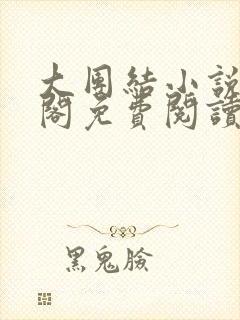 大團結小說
閣免費閱讀
黑鬼臉